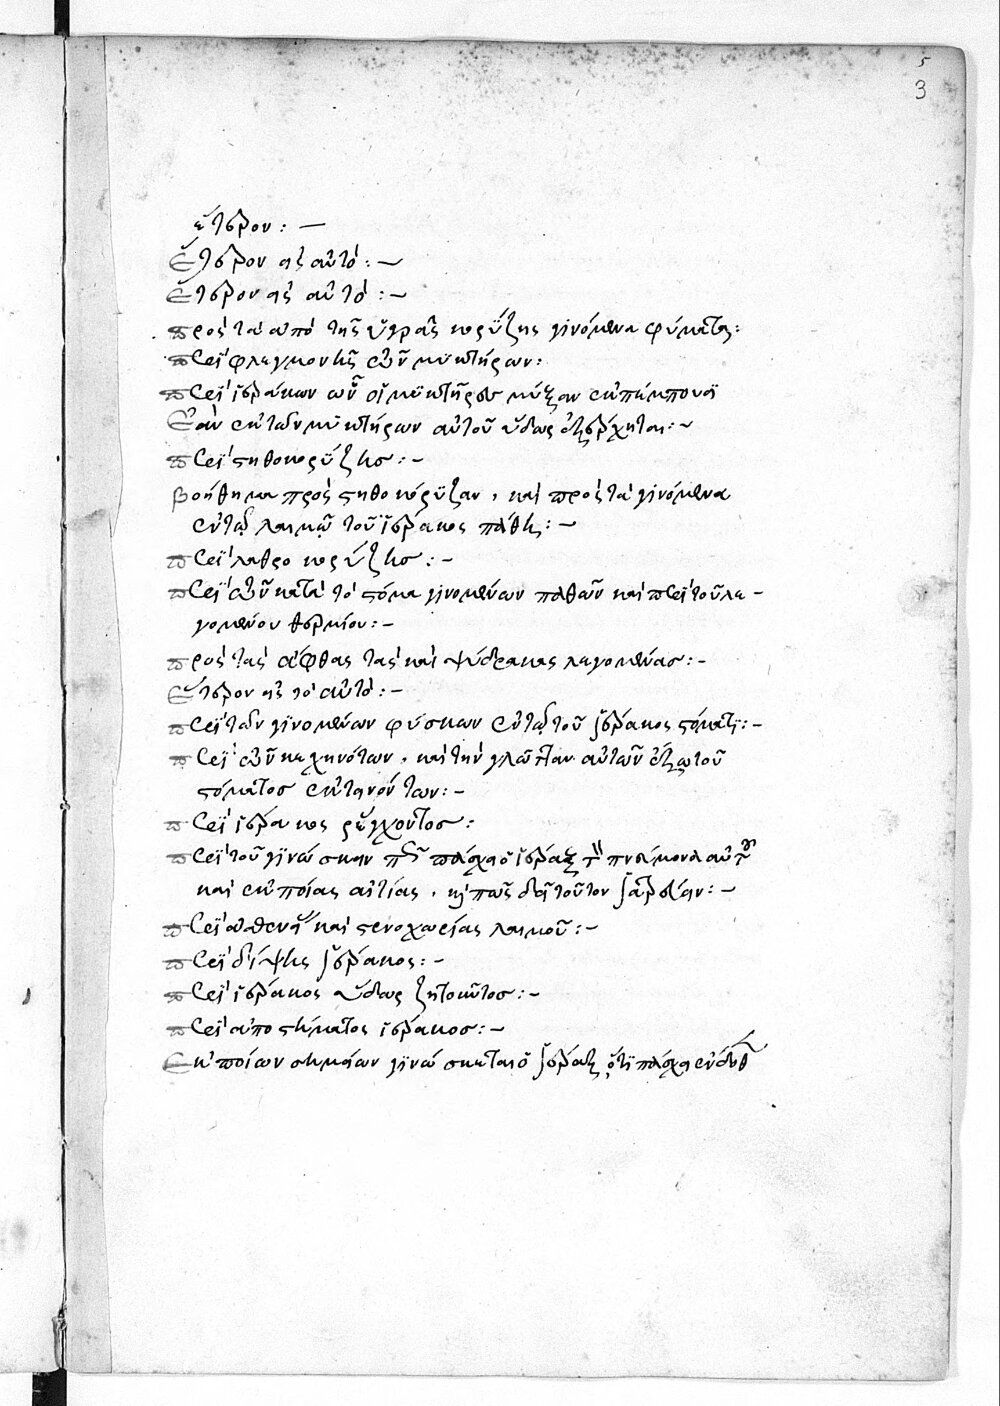 5
3
ἕτερον: —
Ἕτερον εἰς αὐτό: —
Ἕτερον εἰς αὐτό: —
πρὸς τὰ ἀπὸ τῆς ὑγρᾶς κορύζης γινόμενα φύματα:
περὶ φλεγμονῆς τῶν μυκτήρων:
περὶ ἱεράκων ὧν οἱ μυκτῆρες μύξαν ἐκπέμπουσι
Ἐὰν ἐκ τῶν μυκτήρων αὐτοῦ ὕδωρ ἐξέρχηται: —
περὶ στηθοκορύζης: —
βοήθημα πρὸς στηθοκόρυζαν, καὶ πρὸς τὰ γινόμενα
ἐν τῷ λαιμῷ τοῦ ἱέρακος πάθη: —
περὶ λαθροκορύζης: —
περὶ τῶν κατὰ τὸ στόμα γινομένων παθῶν καὶ περὶ τοῦ λε —
γομένου θερμίου: —
πρὸς τὰς ἄφθας τὰς καὶ ψύδρακας λεγομένας: —
Ἕτερον εἰς τὸ αὐτό: —
περὶ τῶν γινομένων φύσκων ἐν τῷ τοῦ ἱέρακος στόματι: —
περὶ τῶν κεχηνότων, καὶ τὴν γλῶτταν αὐτῶν ἔξω τοῦ
στόματος ἐκτεινόντων: —
περὶ ἱέρακος ῥέγχοντος:
περὶ τοῦ γινώσκειν πῶς πάσχει ὁ ἱέραξ τὸν πνεύμονα αὐτοῦ
καὶ ἐκ ποίας αἰτίας, καὶ πῶς δεῖ τοῦτον ἰατρεύειν: —
περὶ ἀσθενεί καὶ στενοχωρίας λαιμοῦ: —
περὶ δίψης ἱέρακος: —
περὶ ἱέρακος ὕδωρ ζητοῦντος: —
περὶ ἀποστήματος ἱέρακος: —
Ἐκ ποίων σημείων γινώσκεται ὁ ἱέραξ ὅτι πάσχει ἔνδοθεν